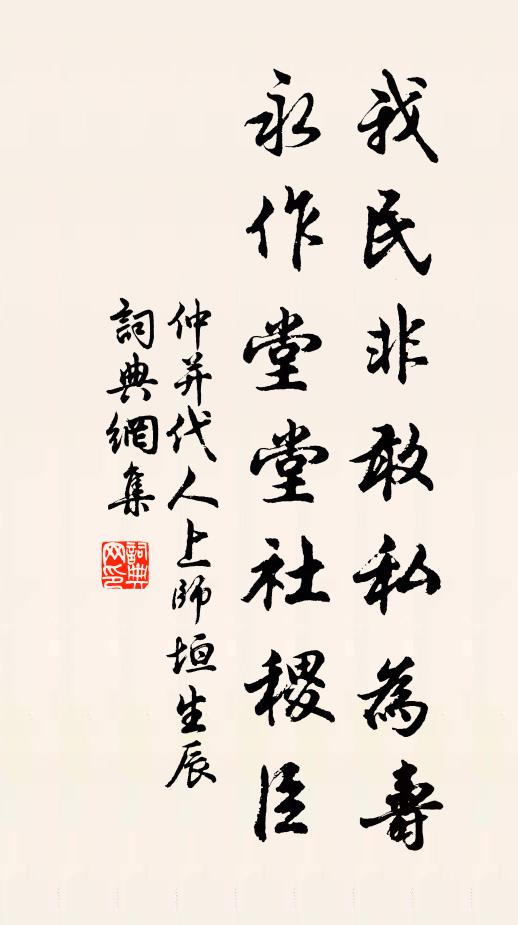 我民非敢私為壽
永作堂堂社稷臣
仲并代人上師垣生辰
詞典網集
詞典网印